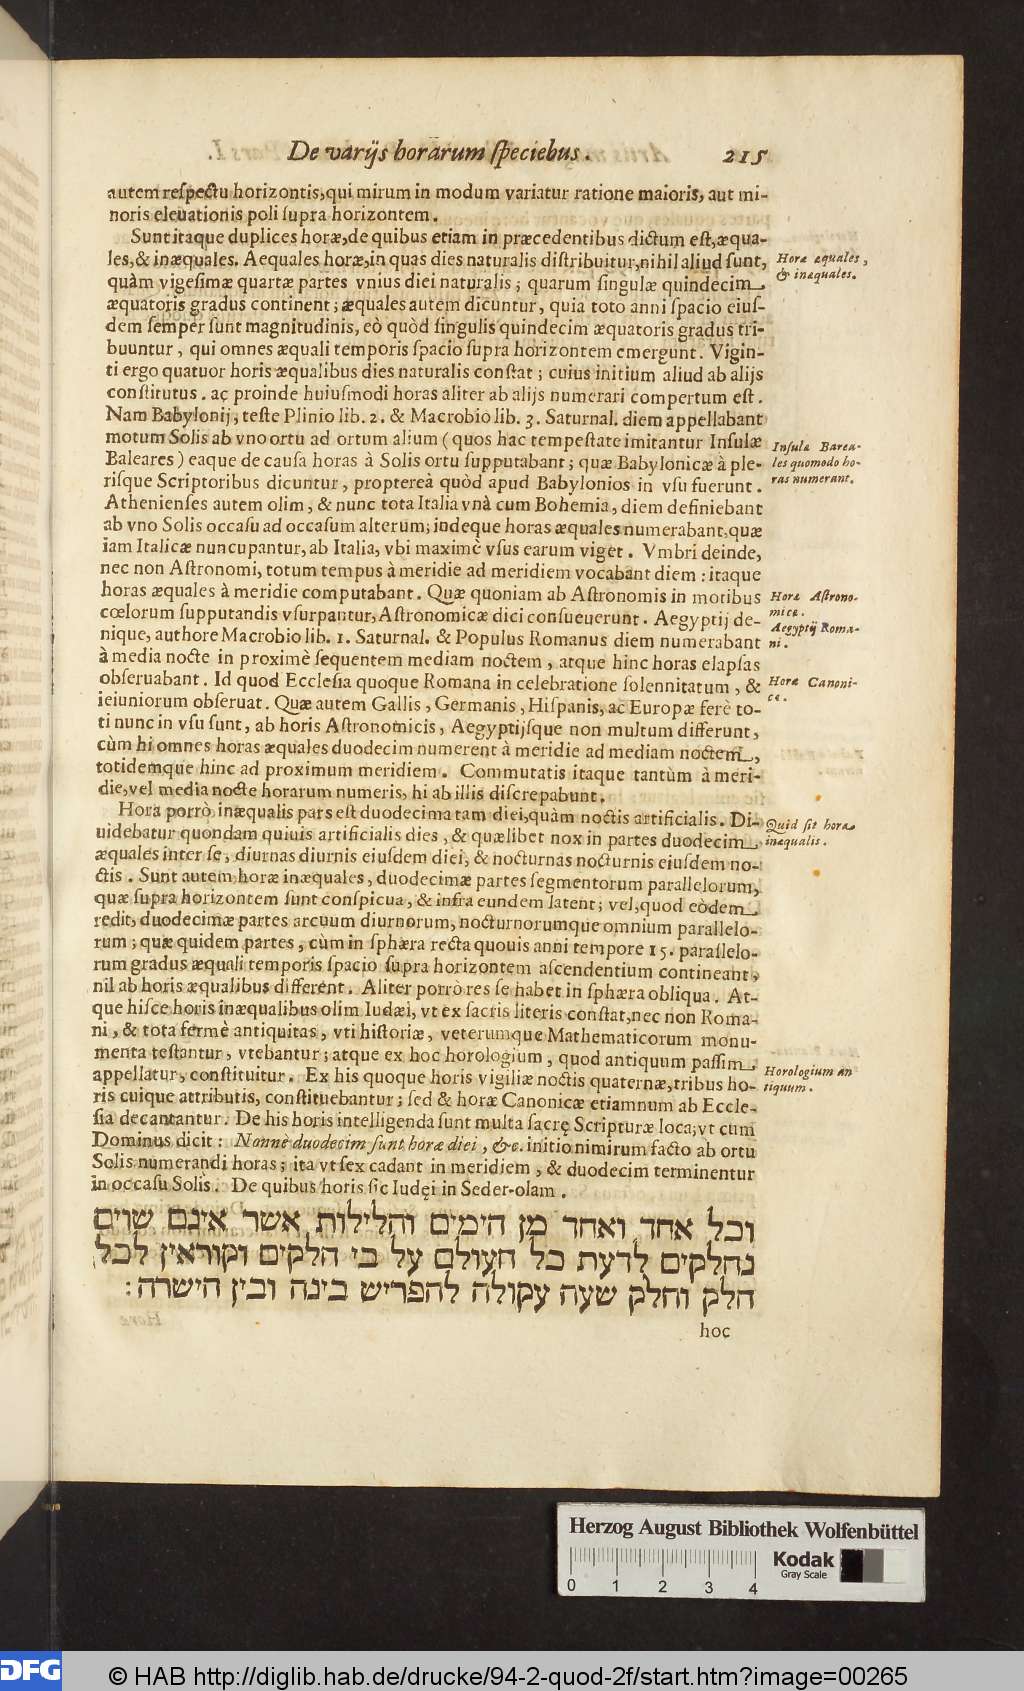 De varijs horarum ſpeciebus. 215
autem reſpectu horizontis, qui mirum in modum variatur ratione maioris, aut mi-
noris eleuationis poli ſupra horizontem.
Sunt itaque duplices horæ, de quibus etiam in præcedentibus dictum eſt, æqua-
les, & inæquales. Aequales horæ, in quas dies naturalis diſtribuitur, nihil aliud ſunt,
quàm vigeſimæ quartæ partes vnius diei naturalis; quarum ſingulæ quindecim
æquatoris gradus continent; æquales autem dicuntur, quia toto anni ſpacio eiuſ-
dem ſemper ſunt magnitudinis, eò quòd ſingulis quindecim æquatoris gradus tri-
buuntur, qui omnes æquali temporis ſpacio ſupra horizontem emergunt. Vigin-
ti ergo quatuor horis æqualibus dies naturalis conſtat; cuius initium aliud ab alijs
conſtitutus. ac proinde huiuſmodi horas aliter ab alijs numerari compertum eſt.
Nam Babylonij, teſte Plinio lib. 2. & Macrobio lib. 3. Saturnal. diem appellabant
motum Solis ab vno ortu ad ortum alium (quos hac tempeſtate imitantur Inſulæ
Baleares) eaque de cauſa horas à Solis ortu ſupputabant; quæ Babylonicæ à ple-
riſque Scriptoribus dicuntur, proptereà quòd apud Babylonios in vſu fuerunt.
Athenienſes autem olim, & nunc tota Italia vnà cum Bohemia, diem definiebant
ab vno Solis occaſu ad occaſum alterum; indeque horas æquales numerabant, quæ
iam Italicæ nuncupantur, ab Italia, vbi maximè vſus earum viget. Vmbri deinde,
nec non Aſtronomi, totum tempus à meridie ad meridiem vocabant diem: itaque
horas æquales à meridie computabant. Quæ quoniam ab Aſtronomis in motibus
cœlorum ſupputandis vſurpantur, Aſtronomicæ dici conſueuerunt. Aegyptij de-
nique, authore Macrobio lib. 1. Saturnal. & Populus Romanus diem numerabant
à media nocte in proximè ſequentem mediam noctem, atque hinc horas elapſas
obſeruabant. Id quod Eccleſia quoque Romana in celebratione ſolennitatum, &
ieiuniorum obſeruat. Quæ autem Gallis, Germanis, Hiſpanis, ac Europæ ferè to-
ti nunc in vſu ſunt, ab horis Aſtronomicis, Aegyptijſque non multum differunt,
cùm hi omnes horas æquales duodecim numerent à meridie ad mediam noctem,
totidemque hinc ad proximum meridiem. Commutatis itaque tantùm à meri-
die, vel media nocte horarum numeris, hi ab illis diſcrepabunt.
Hora porrò inæqualis pars eſt duodecima tam diei, quàm noctis artificialis. Di-
uidebatur quondam quiuis artificialis dies, & quælibet nox in partes duodecim
æquales inter ſe, diurnas diurnis eiuſdem diei, & nocturnas nocturnis eiuſdem no-
ctis. Sunt autem horæ inæquales, duodecimæ partes ſegmentorum parallelorum,
quæ ſupra horizontem ſunt conſpicua, & infra eundem latent; vel, quod eòdem
redit, duodecimæ partes arcuum diurnorum, nocturnorumque omnium parallelo-
rum; quæ quidem partes, cùm in ſphæra recta quouis anni tempore 15. parallelo-
rum gradus æquali temporis ſpacio ſupra horizontem aſcendentium contineant,
nil ab horis æqualibus different. Aliter porrò res ſe habet in ſphæra obliqua. At-
que hiſce horis inæqualibus olim Iudæi, vt ex ſacris literis conſtat, nec non Roma-
ni, & tota fermè antiquitas, vti hiſtoriæ, veterumque Mathematicorum monu-
menta teſtantur, vtebantur; atque ex hoc horologium, quod antiquum paſſim
appellatur, conſtituitur. Ex his quoque horis vigiliæ noctis quaternæ, tribus ho-
ris cuique attributis, conſtituebantur; ſed & horæ Canonicæ etiamnum ab Eccle-
ſia decantantur. De his horis intelligenda ſunt multa ſacrę Scripturæ loca; vt cum
Dominus dicit: Nonne duodecim ſunt horæ diei, &c. initio nimirum facto ab ortu
Solis numerandi horas; ita vt ſex cadant in meridiem, & duodecim terminentur
in occaſu Solis. De quibus horis ſic Iudęi in Seder-olam.
וכל אחד ואחד מן הימים והלילות אשר אינם שוים
נחלקים לדעת כל העולם על בי הלקים וקוראין לכל
חלק וחלק שעה עקולה להפריש בינה ובין הישרה:
hoc
Horæ æquales,
& inæquales.
Inſulæ Barea-
les quomodo ho-
ras numerant.
Horæ Aſtrono-
micæ.
Aegyptij Roma-
ni.
Horæ Canoni-
cæ.
Quid ſit hora
inæqualis.
Horologium an
tiquum.
Herzog August Bibliothek Wolfenbüttel
Kodak
Gray Scale
0 1 2 3 4
DFG
© HAB http://diglib.hab.de/drucke/94-2-quod-2f/start.htm?image=00265